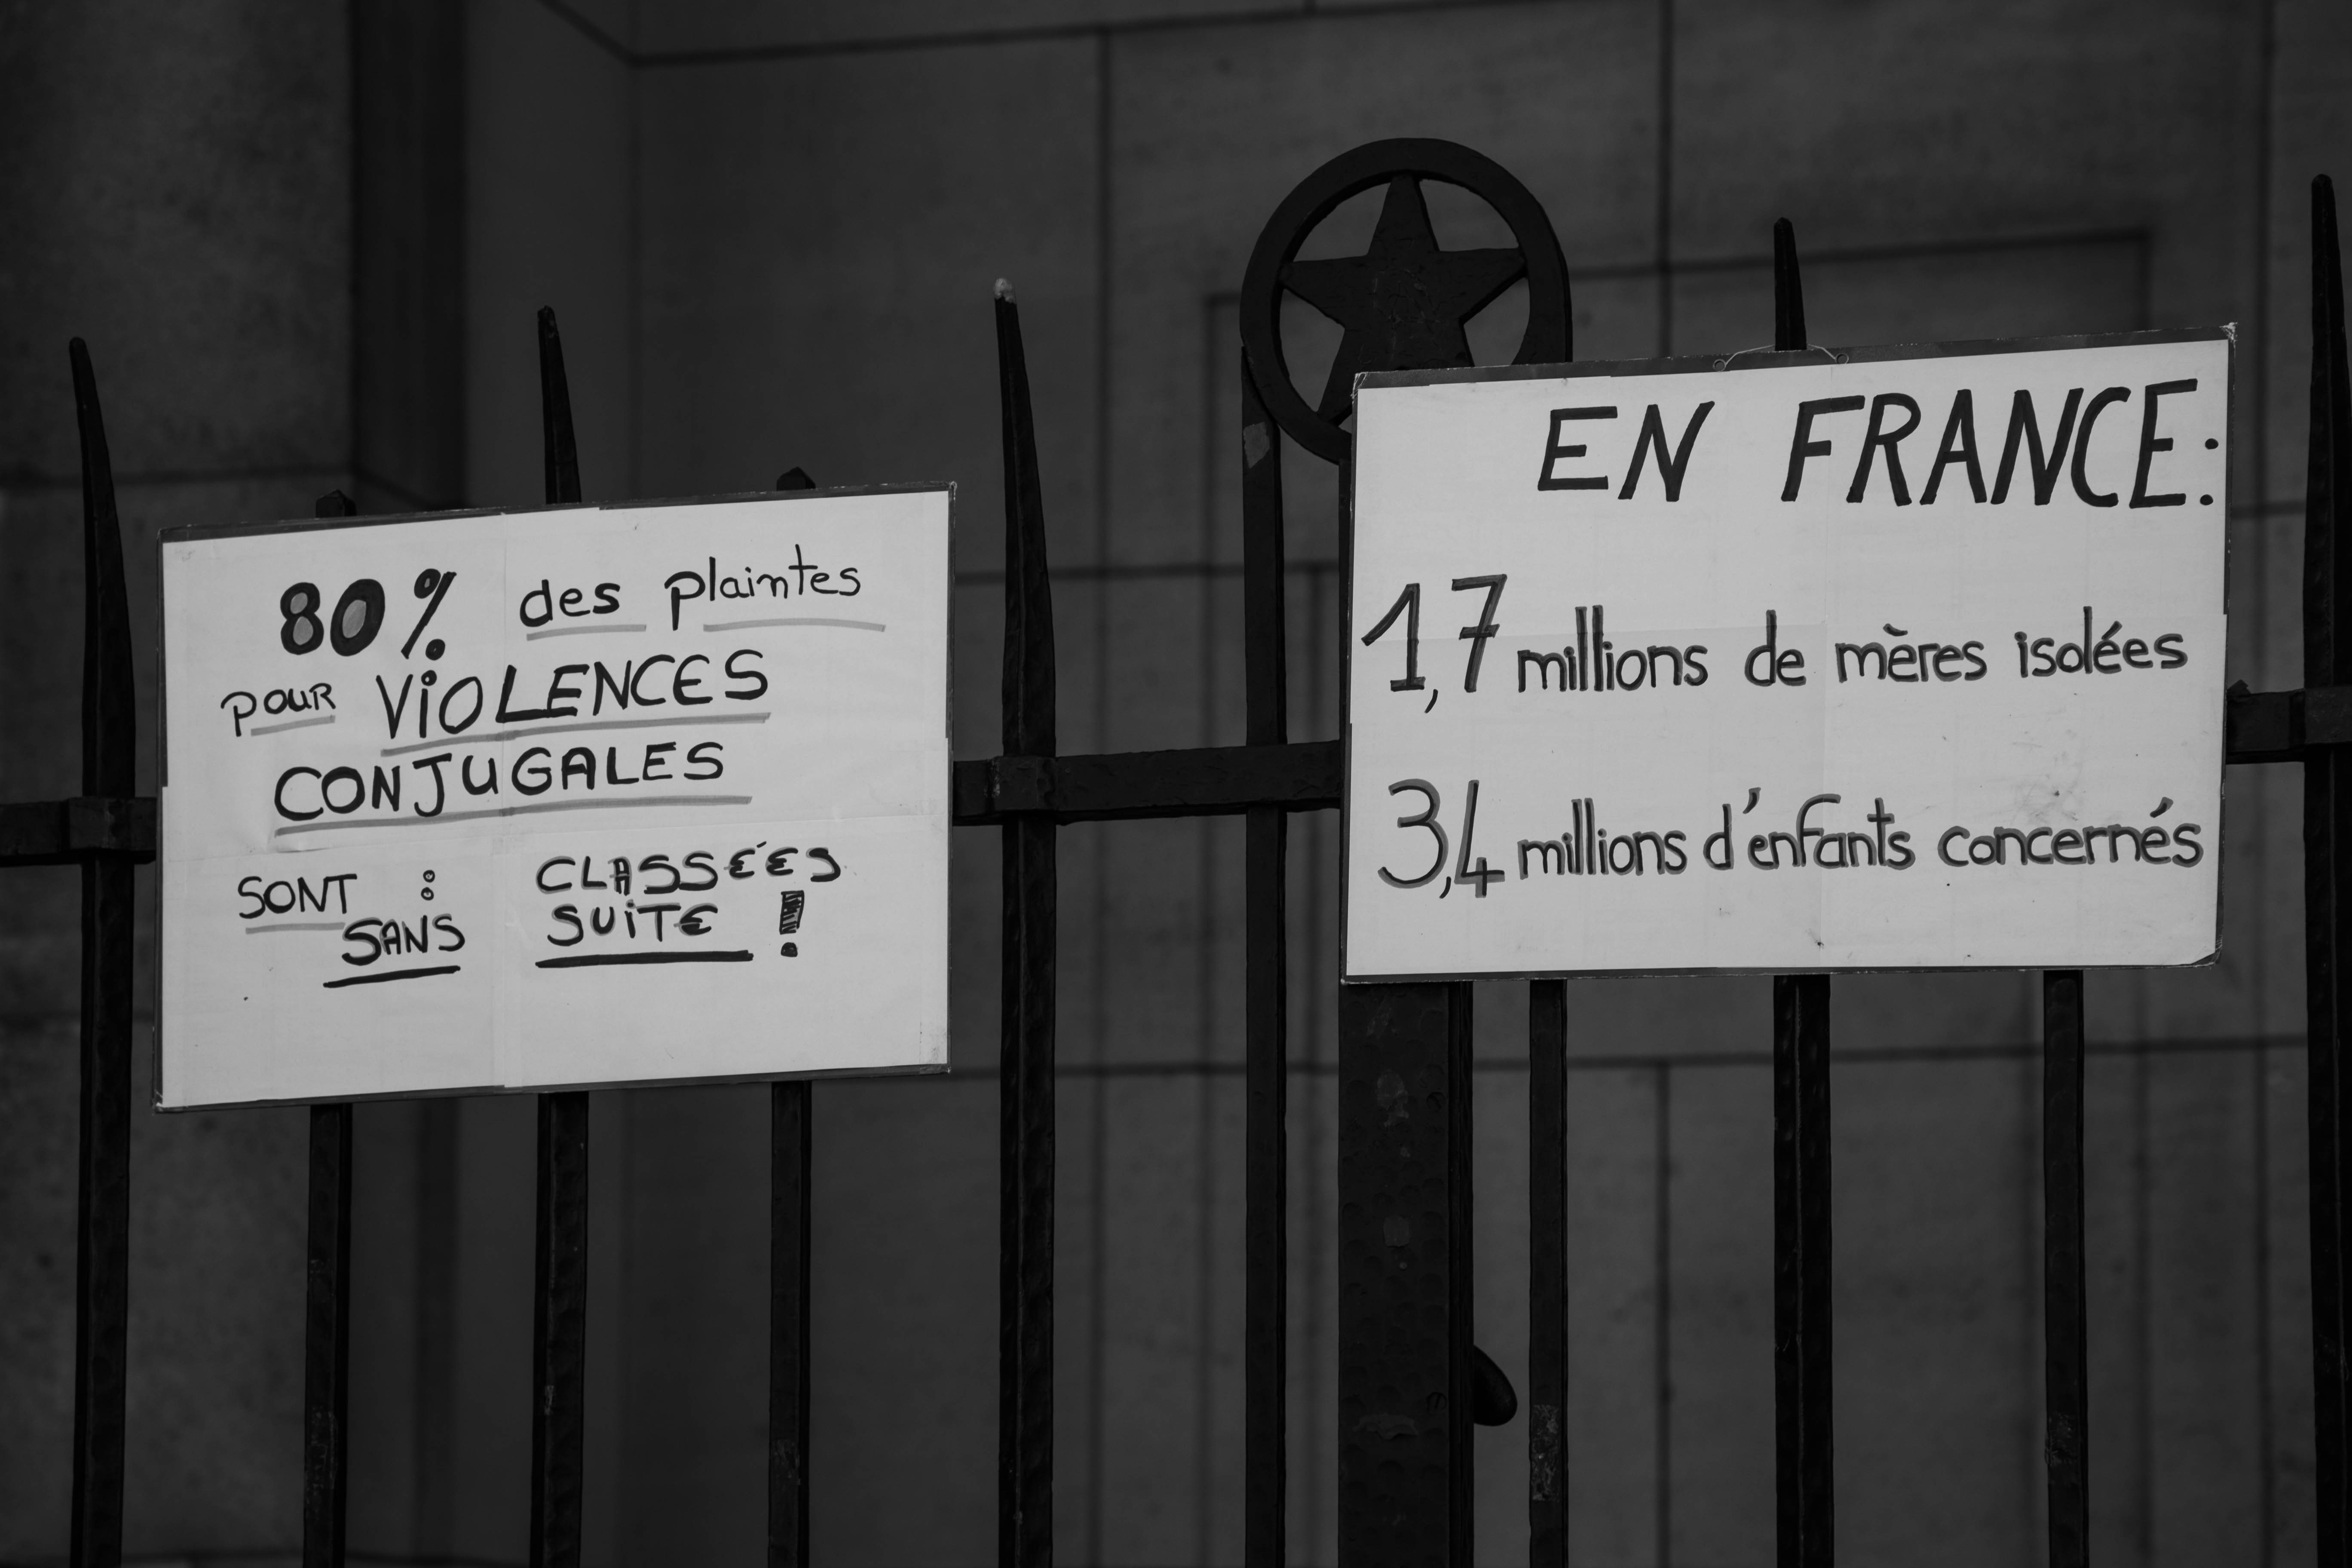 80% des plaintes
pour VIOLENCES
CONJUGALES
SONT : CLASSÉES
SANS SUITE !
EN FRANCE:
1,7 millions de mères isolées
3,4 millions d'enfants concernés